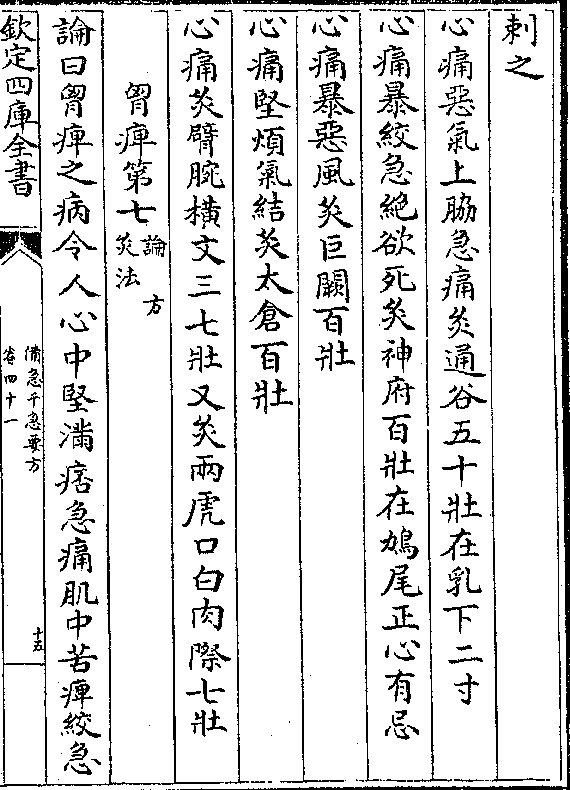 刺之
心痛惡氣上脇急痛灸通谷五十壯在乳下二寸
心痛暴絞急絕欲死灸神府百壯在鳩尾正心有忌
心痛暴惡風灸巨闕百壯
心痛堅煩氣結灸太倉百壯
心痛灸臂腕横文三七壯又灸兩虎口白肉際七壯
胷痺第七論 方
灸法
論曰胷痺之病令人心中堅滿痞急痛肌中苦痺絞急
欽定四庫全書
備急千金要方
卷四十一
十五